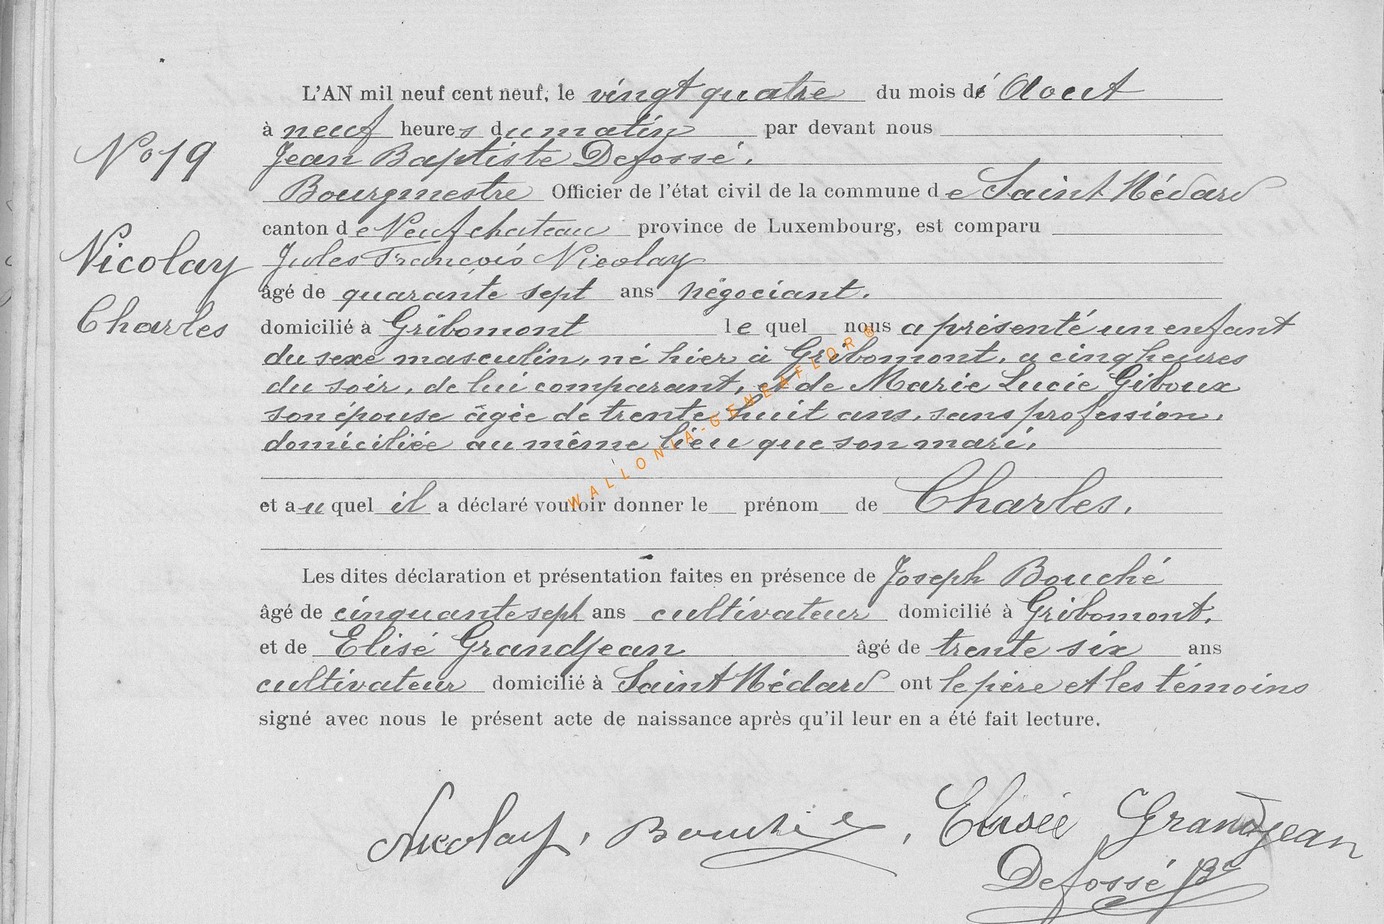 L'AN mil neuf cent neuf, le vingt quatre du mois dé Aout
à neuf heures du matin par devant nous
No 19
Jean Baptiste Defossé.
Bourgmestre Officier de l'état civil de la commune de Saint Médard
canton de Neufchateau province de Luxembourg, est comparu
Nicolay
Jules François Nicolay
âgé de quarante sept ans négociant.
Charles
domicilié à Gribomont lequel nous a présenté un enfant
du sexe masculin, né hier à Gribomont, a cinq heures
du soir, de lui comparant, et de Marie Lucie Giboux
son épouse âgée de trente huit ans, sans profession,
domiciliée au même lieu que son mari.
WALLONIA-GENEAFLOR®
et auquel il a déclaré vouloir donner le prénom de Charles.
Les dites déclaration et présentation faites en présence de Joseph Bouché
âgé de cinquante sept ans cultivateur domicilié à Gribomont.
et de Elisé Grandjean âgé de trente six ans
cultivateur domicilié à Saint Médard ont le père et les témoins
signé avec nous le présent acte de naissance après qu'il leur en a été fait lecture.
Nicolay, Bouché, Elisée Grandjean
Defossé Bc